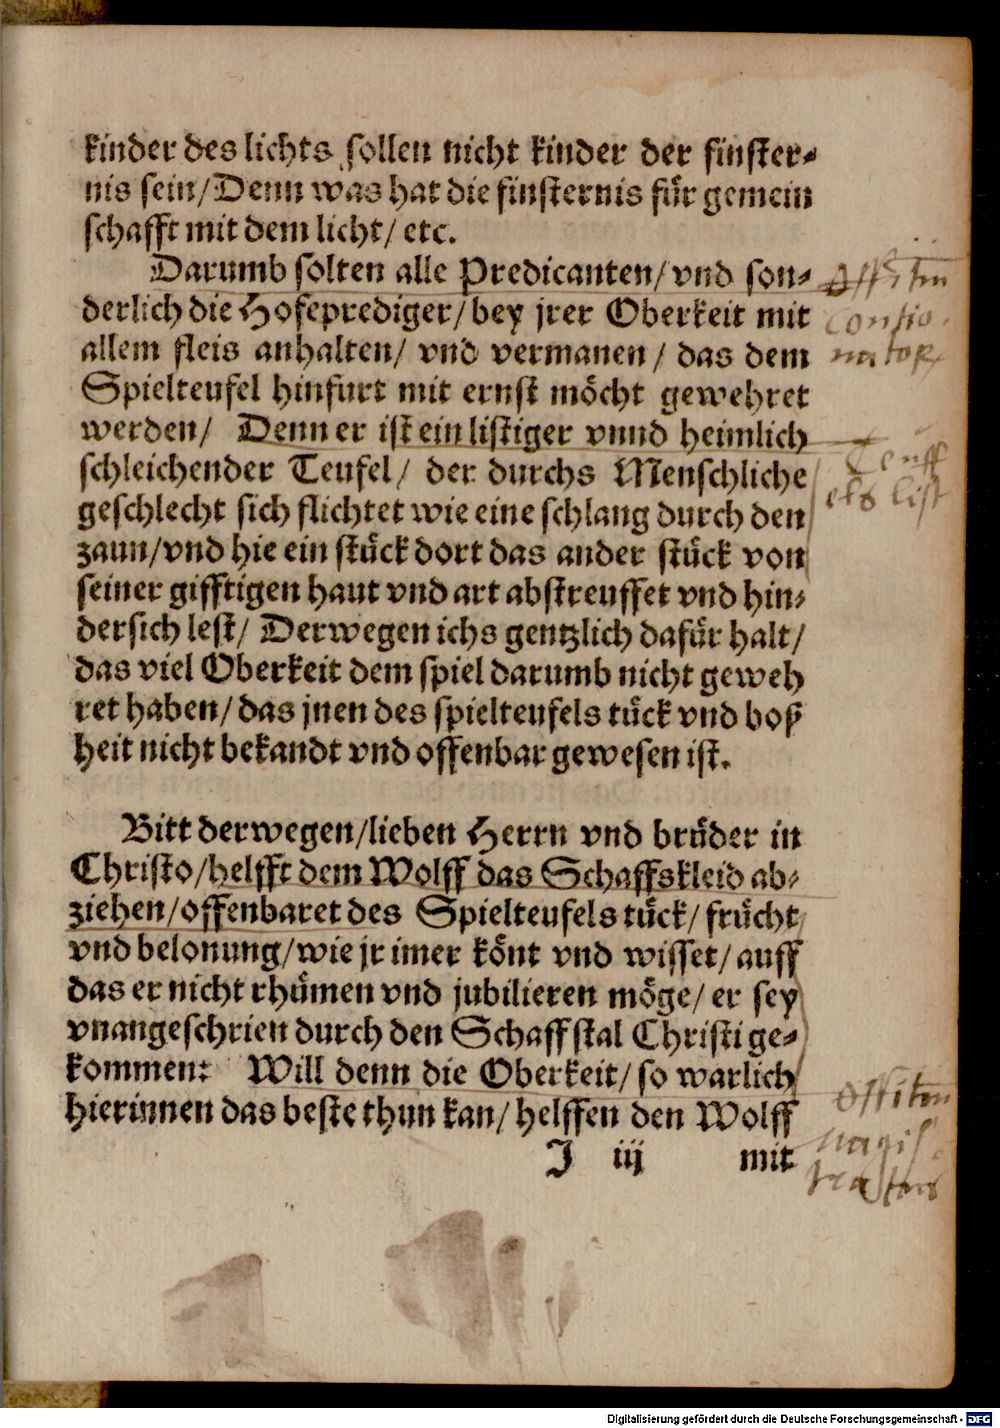 kinder des lichts sollen nicht kinder der finster-
nis sein/Denn was hat die finsternis für gemein
schafft mit dem licht/ etc.
Darumb solten alle Predicanten/vnd son-
derlich die Hofeprediger/bey jrer Oberkeit mit
allem fleis anhalten/ vnd vermanen/ das dem
Spielteufel hinfurt mit ernst möcht gewehret
werden/ Denn er ist ein listiger vnnd heimlich
schleichender Teufel/ der durchs Menschliche
geschlecht sich flichtet wie eine schlang durch den
zaun/vnd hie ein stück dort das ander stück von
seiner gifftigen haut vnd art abstreuffet vnd hin-
dersich lest/ Derwegen ichs gentzlich dafür halt/
das viel Oberkeit dem spiel darumb nicht geweh
ret haben/ das jnen des spielteufels tück vnd boß
heit nicht bekandt vnd offenbar gewesen ist.
Bitt derwegen/lieben Herrn vnd brüder in
Christo/helfft dem Wolff das Schaffskleid ab-
ziehen/offenbaret des Spielteufels tück/ frücht
vnd belonung/wie jr imer könt vnd wisset/ auff
das er nicht rhümen vnd jubilieren möge/ er sey
vnangeschrien durch den Schaffstal Christi ge-
kommen: Will denn die Oberkeit/ so warlich
hierinnen das beste thun kan/ helffen den Wolff
J iij mit
Contio
nator
Teuff
els list
magis
Digitalisierung gefördert durch die Deutsche Forschungsgemeinschaft - DFG